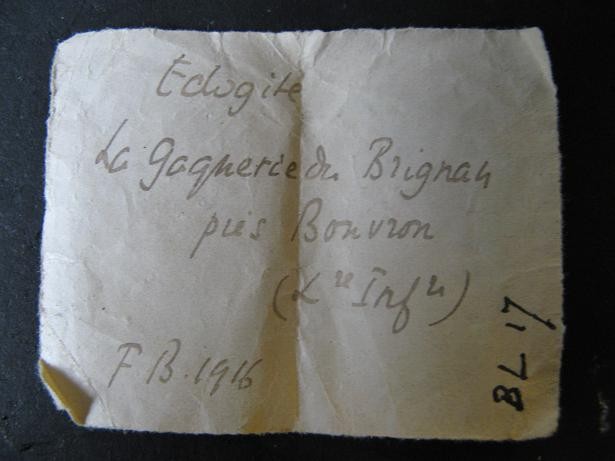 Eclogite
La Gagnerie du Brignan
près Bouvron
(Lre Infre)
F B. 1916
BL 17